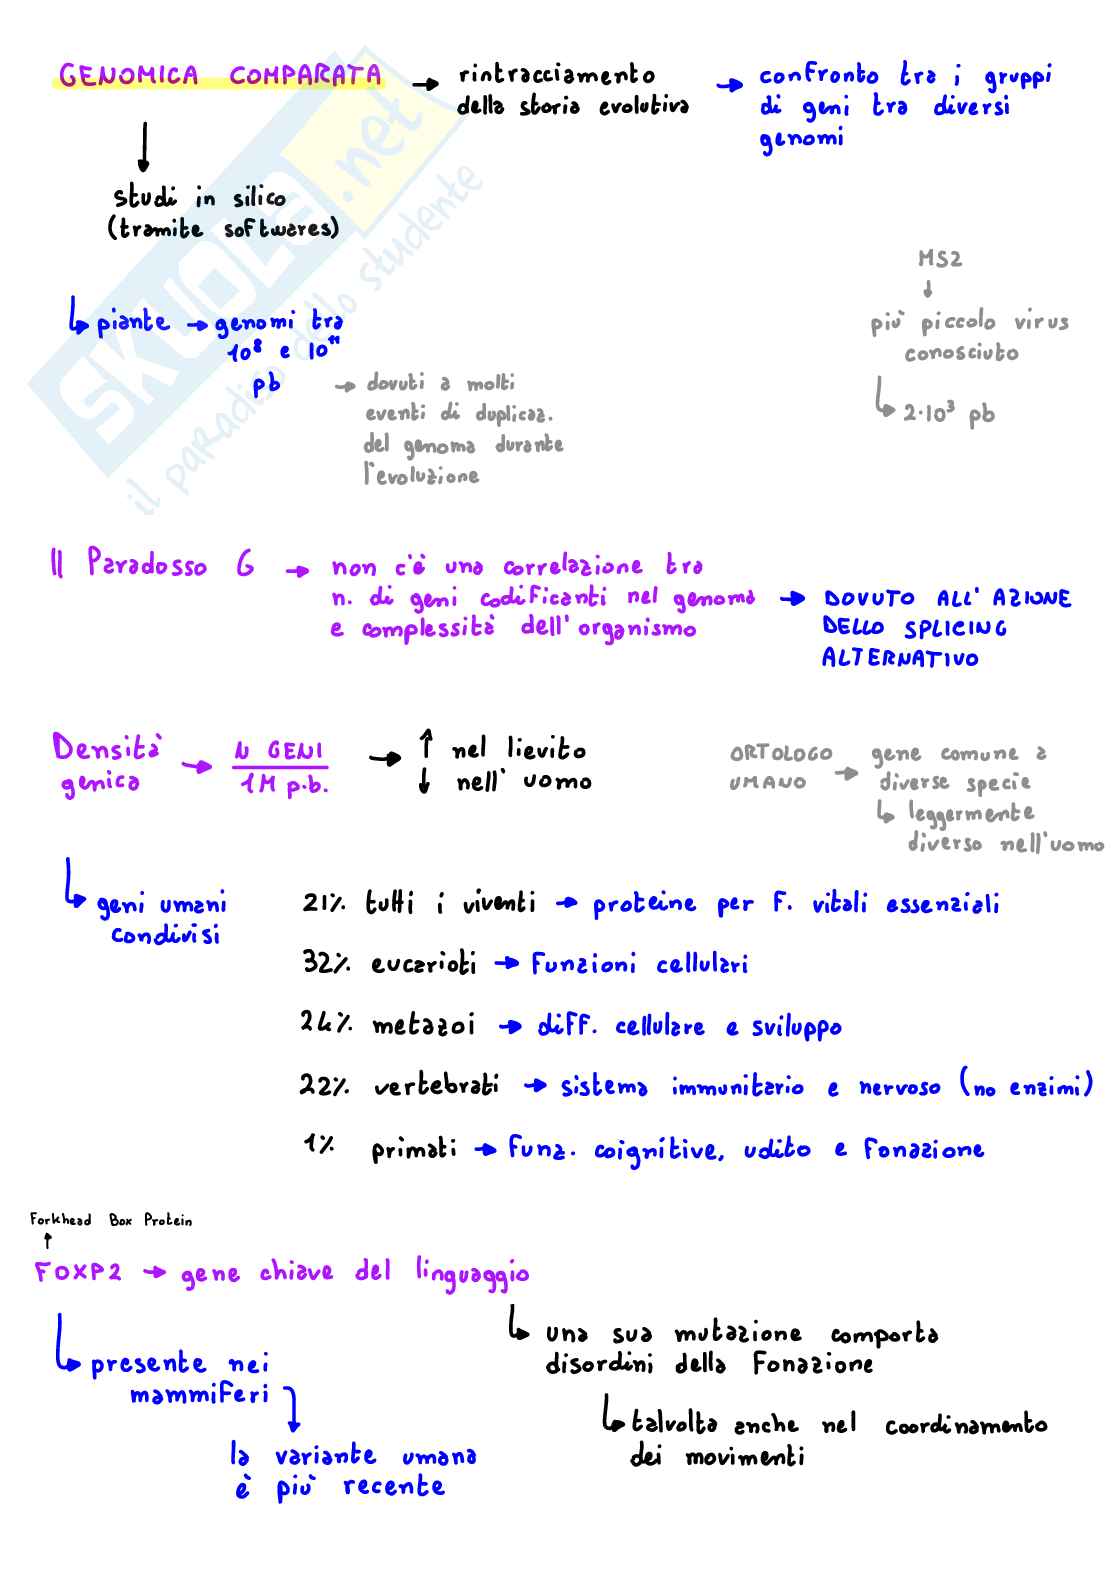 GENOMICA COMPARATA → rintracciamento della storia evolutiva → confronto tra i gruppi di geni tra diversi genomi
studi in silico
(tramite softwares)
piante → genomi tra
10⁸ e 10¹¹
pb
→ dovuti a molti
eventi di duplicaz.
del genoma durante
l'evoluzione
MS2
↓
più piccolo virus
conosciuto
2·10³ pb
Il Paradosso G → non c'è una correlazione tra
n. di geni codificanti nel genoma
e complessità dell'organismo
→ DOVUTO ALL'AZIONE
DELLO SPLICING
ALTERNATIVO
Densità
genica
→ N GENI
1M p.b.
→ ↑ nel lievito
↓ nell'uomo
ORTOLOGO
UMANO
→ gene comune a
diverse specie
leggermente
diverso nell'uomo
geni umani
condivisi
21% tutti i viventi → proteine per f. vitali essenziali
32% eucarioti → funzioni cellulari
24% metazoi → diff. cellulare e sviluppo
22% vertebrati → sistema immunitario e nervoso (no enzimi)
1% primati → funz. coignitive, udito e fonazione
Forkhead Box Protein
↑
FOXP2 → gene chiave del linguaggio
presente nei
mammiferi
la variante umana
è più recente
una sua mutazione comporta
disordini della fonazione
talvolta anche nel coordinamento
dei movimenti
SKUOLA.net
il paradiso dello studente